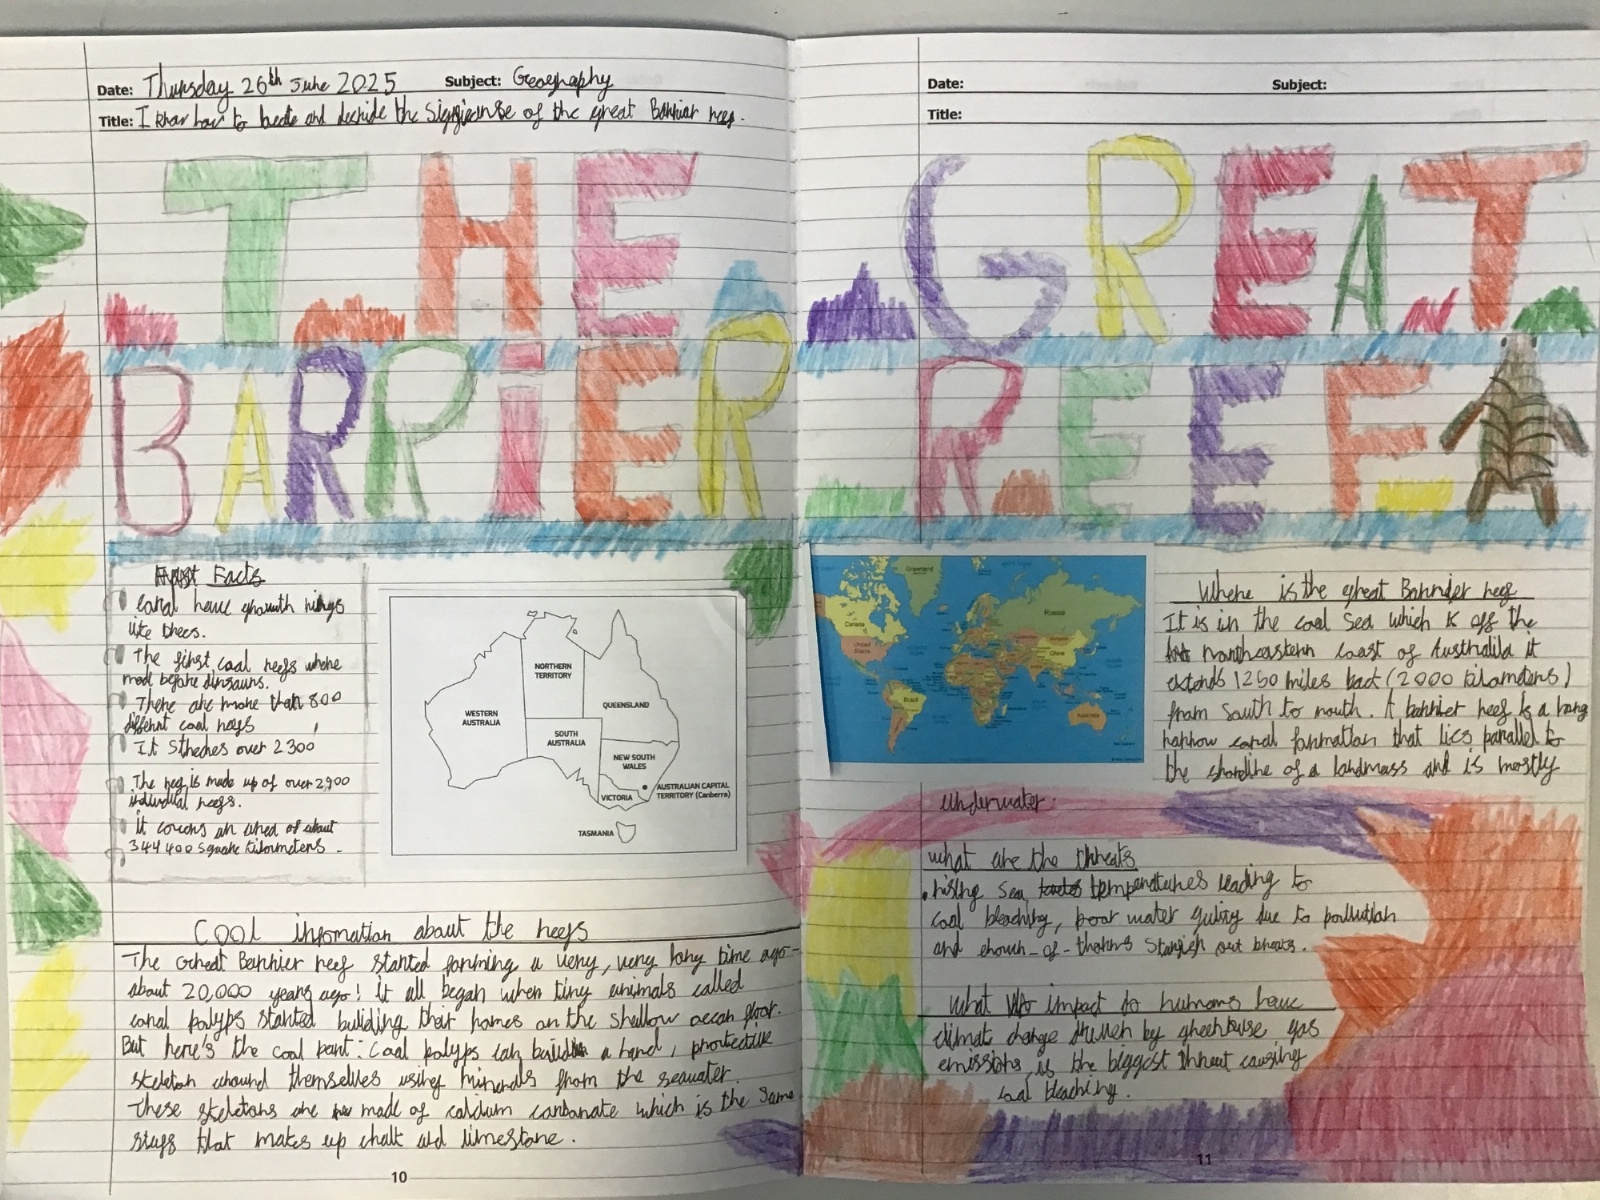 Date: Thursday 26th June 2025 Subject: Geography
Title: I know how to locate and decide the significanse of the great Barriar reef.
THE
BARRiER
Fast Facts
Coral have growth rings
like trees.
The first coal reefs where
mad before dinsaurs.
There are more than 800
differnt coal reefs
It Stheches over 2300
The reef is made up of over 2,900
individual reefs.
it covers an ared of about
344 400 square kilometers.
WESTERN
AUSTRALIA
NORTHERN
TERRITORY
QUEENSLAND
SOUTH
AUSTRALIA
NEW SOUTH
WALES
AUSTRALIAN CAPITAL
TERRITORY (Canberra)
VICTORIA
TASMANIA
COOl infomation about the reefs
The Great Barrier reef started forming a very, very long time ago-
about 20,000 years ago! it all began when tiny animals called
coral polyps started building their homes on the shallow ocean floor.
But here's the cool part: Coal polyps can build a hard, protective
skeleton around themselves using minerals from the seawater.
These skeletons are made of calcium carbonate which is the same
stuff that makes up chalk and limestone.
10
Date: Subject:
Title:
GREAT
REEF
Greenland
Canada
United
States
Brazil
Russia
China
Australia
Where is the great Barrider reef
It is in the coal Sea which is off the
northeastern coast of Australila it
extends 1250 miles back (2000 kilamters)
from South to nouth. A barrier reef is a long
narrow coral formation that lies parallel to
the shoreline of a landmass and is mostly
underwater.
what are the threats
• rising sea tempenatures leading to
coal bleaching, poor water quility due to pollution
and crown-of-thorns Starfish out breaks.
What impact to humans have
climat change driven by greenhouse gas
emissions, is the biggest threat causing
coal bleaching.
11